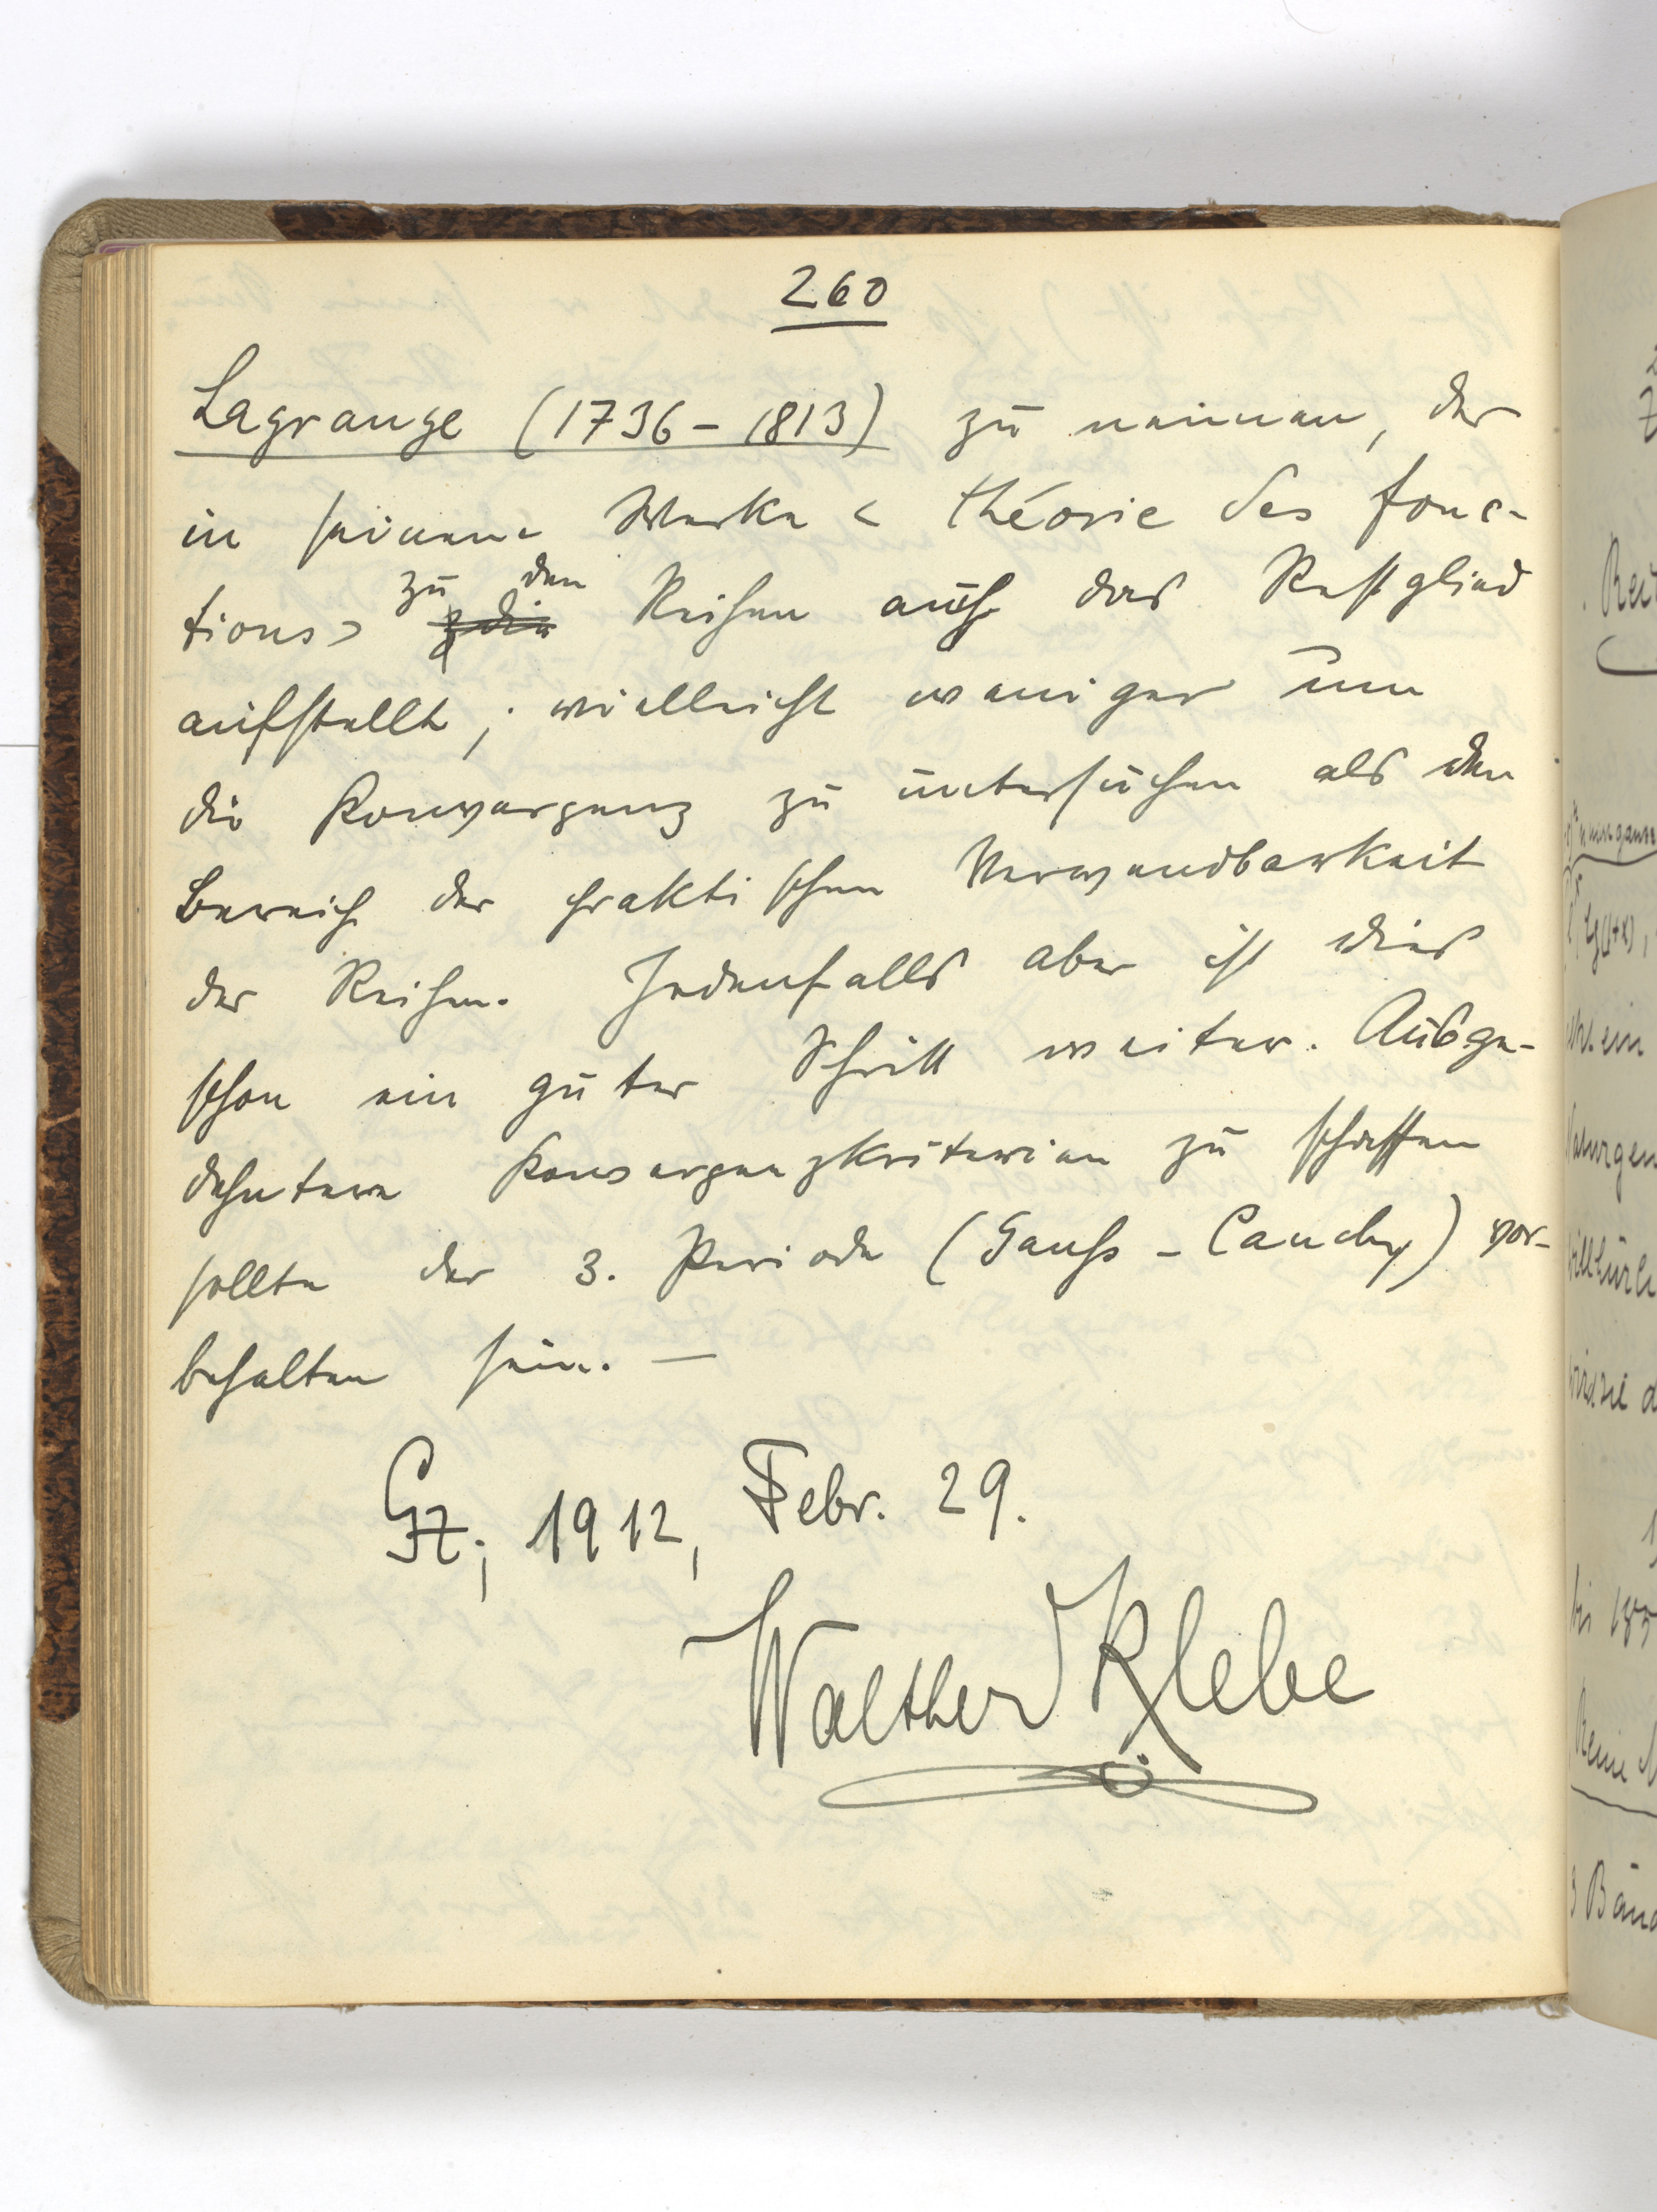 260
Lagrange (1736–1813) zu nennen, der
in seinem Werke < théorie des fonc-
tions > zu den Reihen auch das Restglied
aufstellt; vielleicht weniger um
die Konvergenz zu untersuchen als den
Bereich der praktischen Verwendbarkeit
der Reihen. Jedenfalls aber ist dies
schon ein guter Schritt weiter. Ausge-
dehntere Konvergenzkriterien zu schaffen
sollte der 3. Periode (Gauß – Cauchy) vor-
behalten sein. —
Gz; 1912, Febr. 29.
Walther Klebe